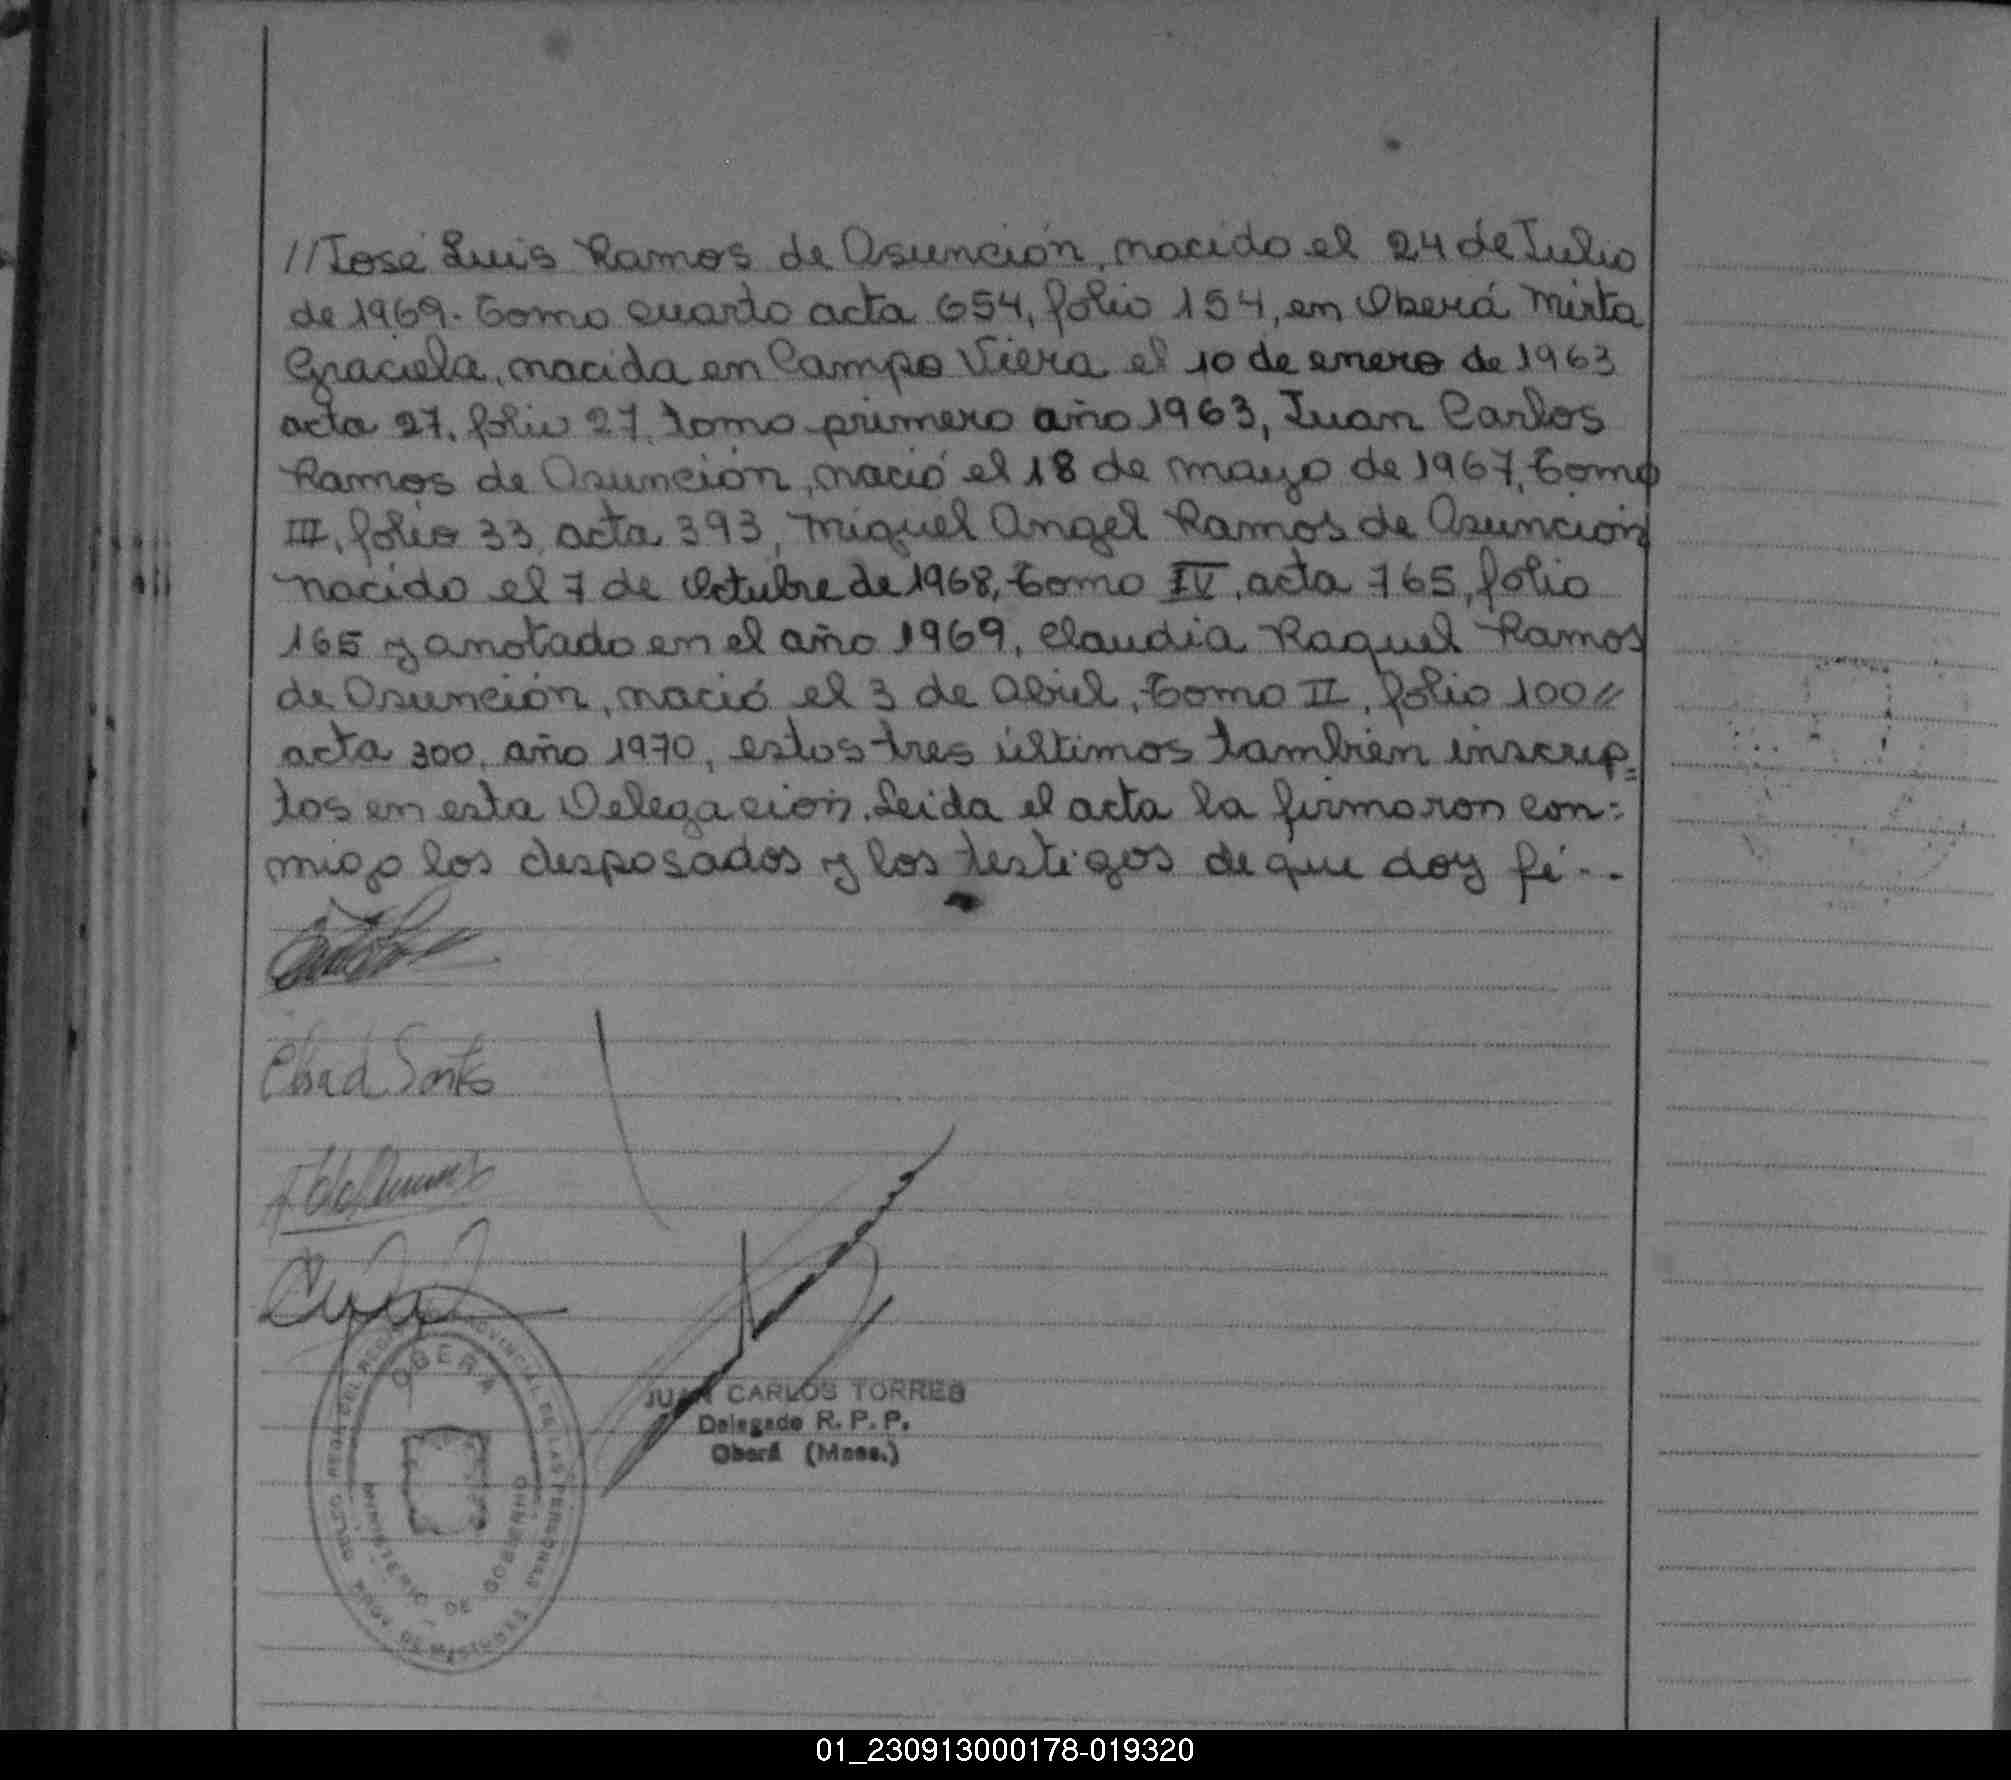 //José Luis Ramos de Asunción, nacido el 24 de Julio
de 1969. Tomo cuarto acta 654, folio 154, en Oberá Mirta
Graciela, nacida en Campo Viera el 10 de enero de 1963
acta 27, folio 27, tomo primero año 1963, Juan Carlos
Ramos de Asunción, nació el 18 de mayo de 1967, Tomo
III, folio 33, acta 393, Miguel Angel Ramos de Asunción
nacido el 7 de Octubre de 1968, Tomo IV, acta 765, folio
165 y anotado en el año 1969, Claudia Raquel Ramos
de Asunción, nació el 3 de Abril, Tomo II, folio 100//
acta 300, año 1970, estos tres últimos también inscrip=
tos en esta Delegación. Leida el acta la firmaron con=
migo los desposados y los testigos de que doy fé...
OBERA
MINISTERIO DE GOBIERNO
PROV. DE MISIONES
JUAN CARLOS TORRES
Delegado R. P. P.
Oberá (Mnes.)
01_230913000178-019320